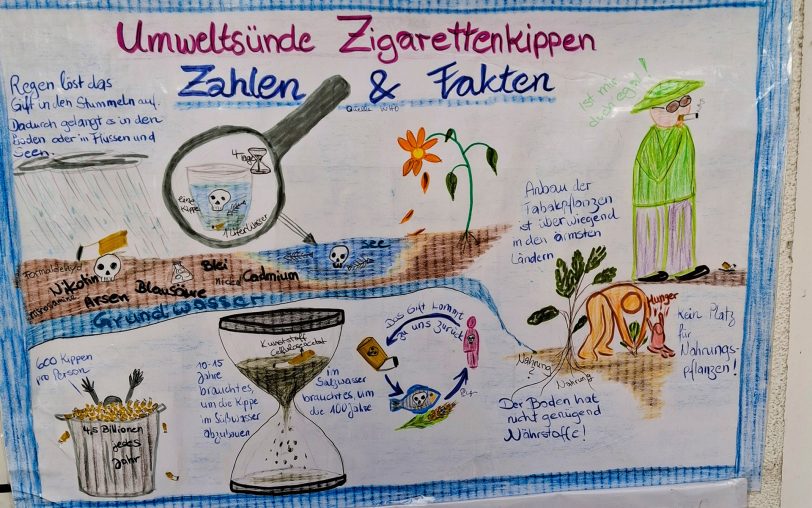 Umweltsünde Zigarettenkippen
Zahlen & Fakten
Regen löst das
Gift in den Stummeln auf.
Dadurch gelangt es in den
Boden oder in Flüssen und
Seen.
4 Tage
eine
Kippe
1 Liter Wasser
See
Formaldehyd
Nikotin
Arsen
Blausäure
Blei
Nickel
Cadmium
Grundwasser
ist mir
doch egal!
Anbau der
Tabakpflanzen
ist überwiegend
in den ärmsten
Ländern
Hunger
kein Platz
für
Nahrungs-
pflanzen!
Nahrung
Nahrung
Der Boden hat
nicht genügend
Nährstoffe!
600 Kippen
pro Person
4,5 Billionen
jedes
Jahr
10-15
Jahre
braucht es,
um die Kippe
im Süßwasser
abzubauen
Kunststoff
Celluloseacetat
im
Salzwasser
braucht es um
die 100 Jahre
Das Gift kommt
zu uns zurück